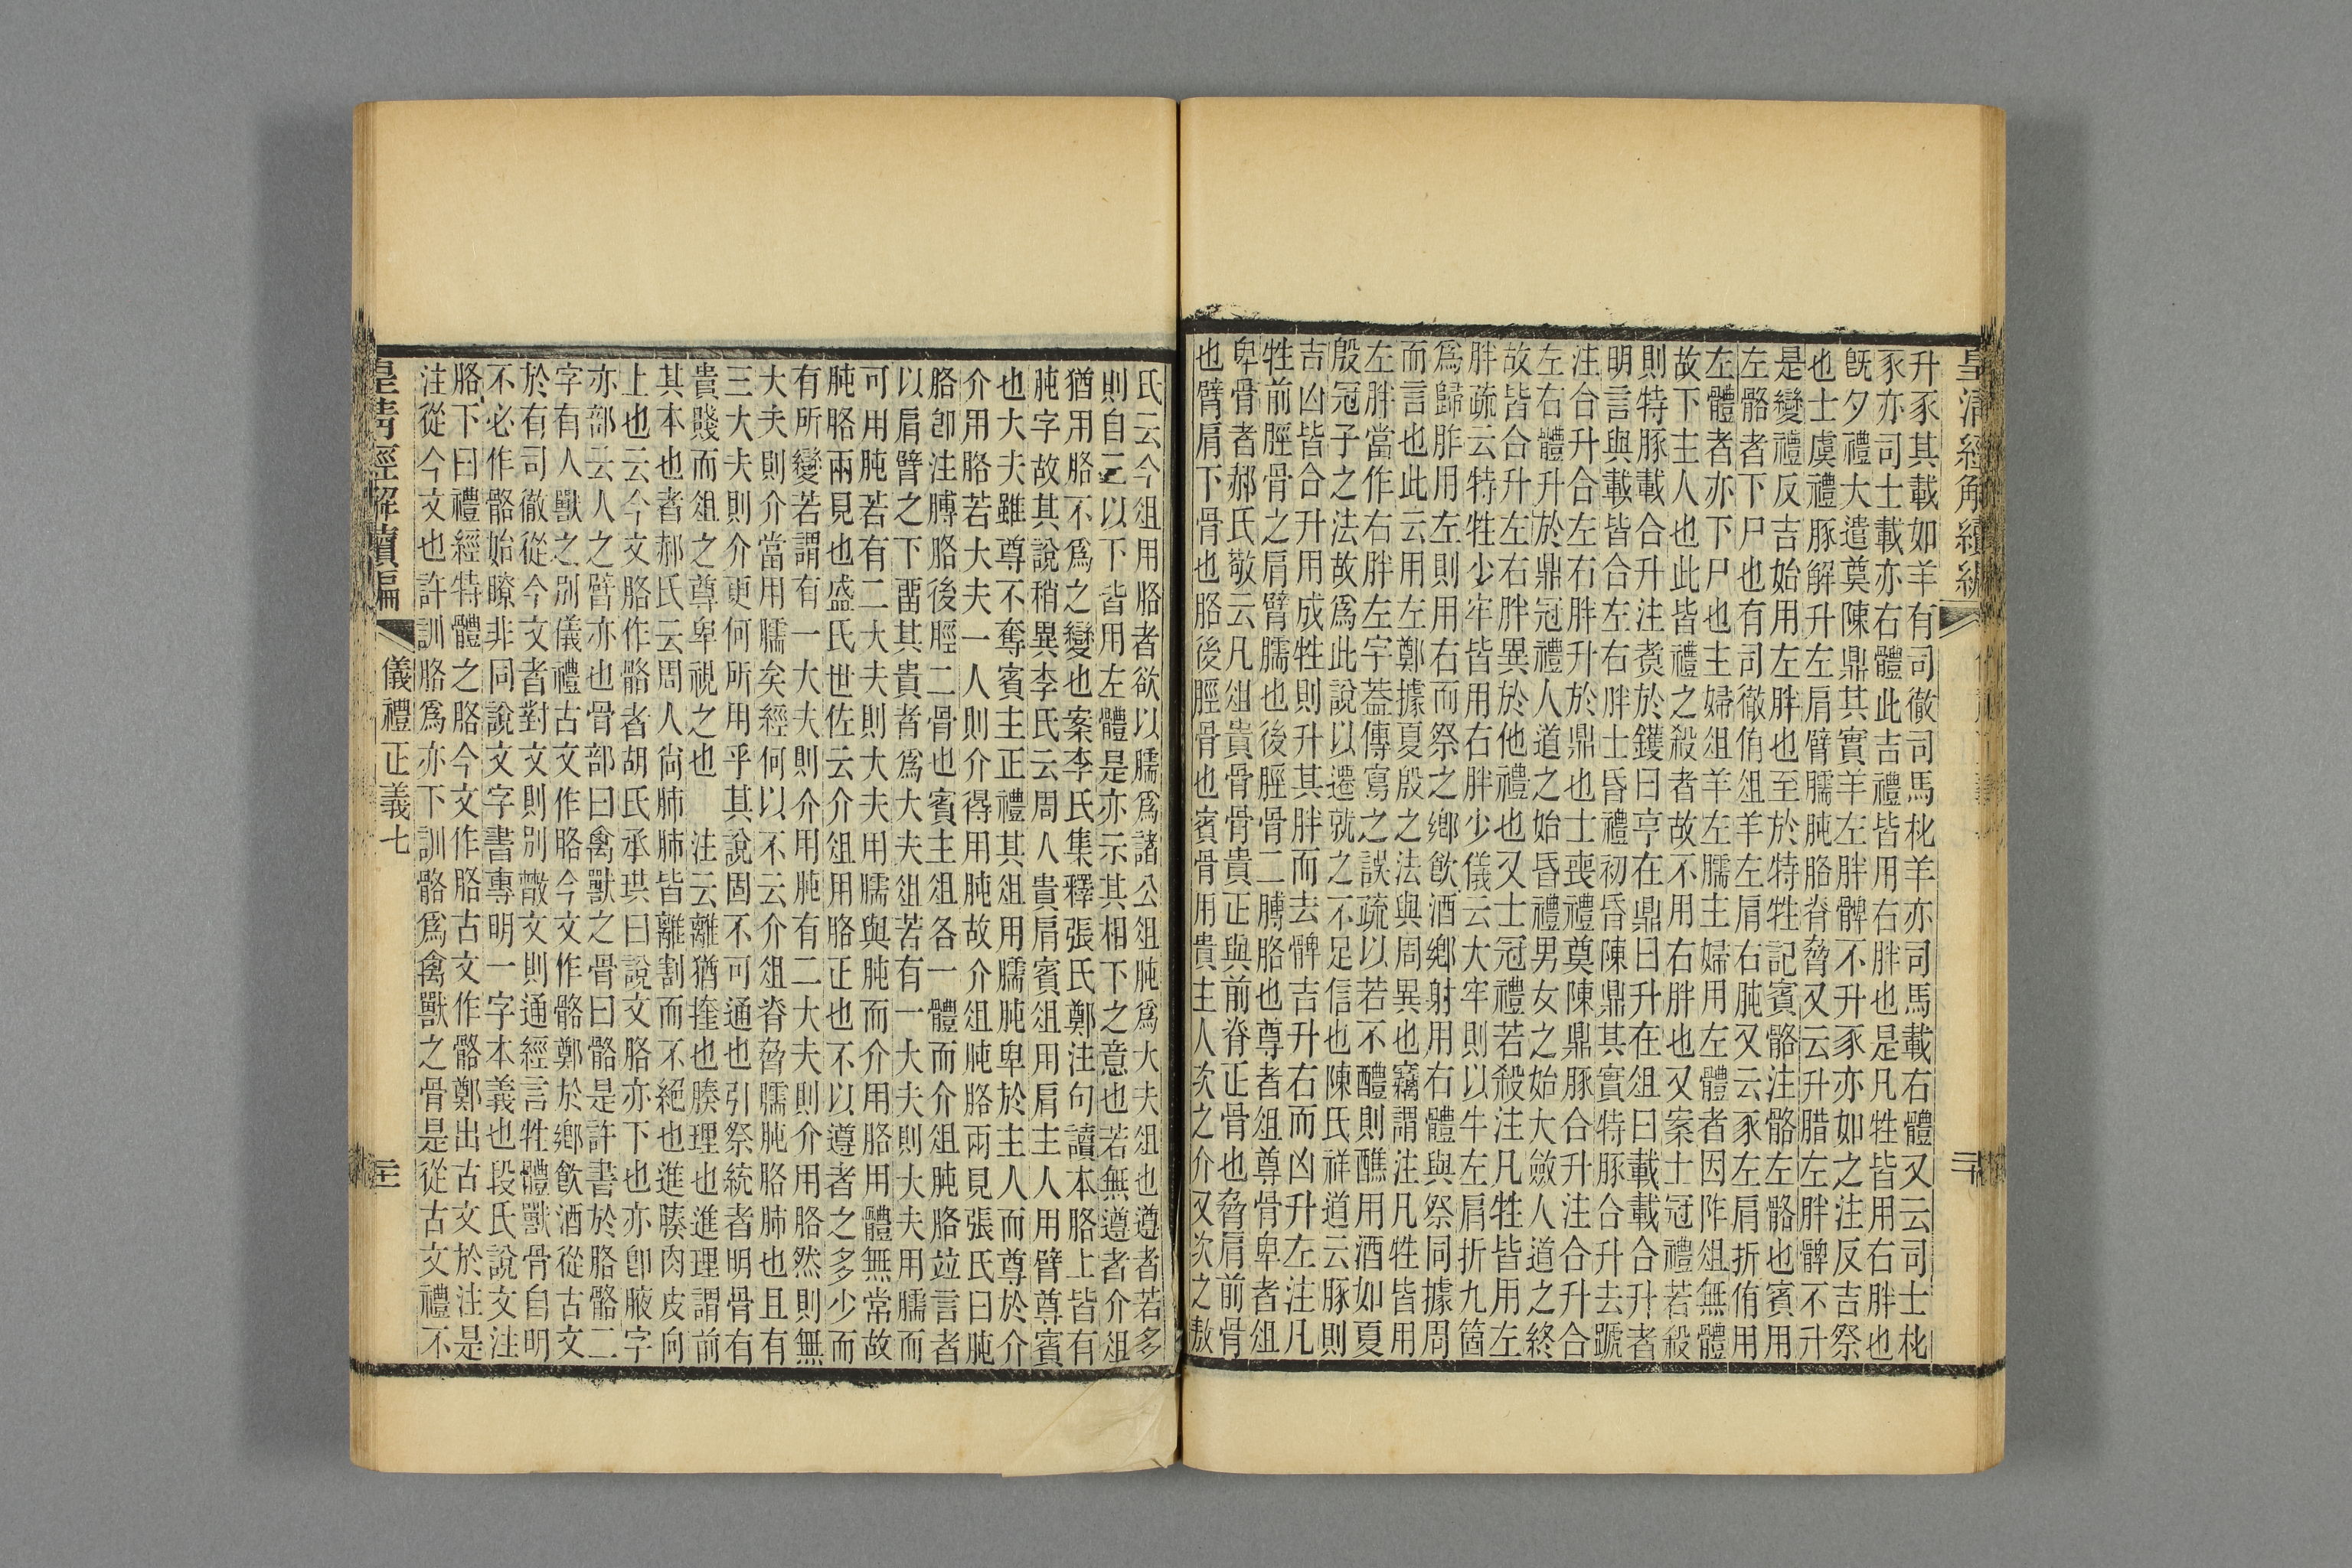 皇清經解續編
升豕其載如羊有司徹司馬朼羊亦司馬載右體又云司士朼
豕亦司士載亦右體此吉禮皆用右胖也是凡牲皆用右胖也
旣夕禮大遣奠陳鼎其實羊左胖髀不升豕亦如之注反吉祭
也士虞禮豚解升左肩臂臑肫胳脊脅又云升腊左胖髀不升
是變禮反吉始用左胖也至於特牲記賓骼注骼左骼也賓用
左骼者下尸也有司徹侑俎羊左肩右肫又云豕左肩折侑用
左體者亦下尸也主婦俎羊左臑主婦用左體者因阼俎無體
故下主人也此皆禮之殺者故不用右胖也又案士冠禮若殺
則特豚載合升注煑於鑊曰亨在鼎曰升在俎曰載載合升者
明言與載皆合左右胖士昏禮初昏陳鼎其實特豚合升去蹏
注合升合左右胖升於鼎也士喪禮奠陳鼎豚合升注合升合
左右體升於鼎冠禮人道之始昏禮男女之始大斂人道之終
故皆合升左右胖異於他禮也又士冠禮若殺注凡牲皆用左
胖疏云特牲少牢皆用右胖少儀云大牢則以牛左肩折九箇
爲歸胙用左則用右而祭之鄉飮酒鄉射用右體與祭同據周
而言也此云用左鄭據夏殷之法與周異也竊謂注凡牲皆用
左胖當作右胖左字葢傳寫之誤疏以若不醴則醮用酒如夏
殷冠子之法故爲此說以遷就之不足信也陳氏祥道云豚則
吉凶皆合升用成牲則升其胖而去髀吉升右而凶升左注凡
牲前脛骨之肩臂臑也後脛骨二膊胳也尊者俎尊骨卑者俎
卑骨者郝氏敬云凡俎貴骨骨貴正與前脊正骨也脅肩前骨
也臂肩下骨也胳後脛骨也賓骨用貴主人次之介又次之敖
氏云今俎用胳者欲以臑爲諸公俎肫爲大夫俎也遵者若多
則自三以下皆用左體是亦示其相下之意也若無遵者介俎
猶用胳不爲之變也案李氏集釋張氏鄭注句讀本胳上皆有
肫字故其說稍異李氏云周人貴肩賓俎用肩主人用臂尊賓
也大夫雖尊不奪賓主正禮其俎用臑肫卑於主人而尊於介
介用胳若大夫一人則介得用肫故介俎肫胳兩見張氏曰肫
胳卽注膊胳後脛二骨也賓主俎各一體而介俎肫胳竝言者
以肩臂之下畱其貴者爲大夫俎若有一大夫則大夫用臑而
可用肫若有二大夫則大夫用臑與肫而介用胳用體無常故
肫胳兩見也盛氏世佐云介俎用胳正也不以遵者之多少而
有所變若謂有一大夫則介用肫有二大夫則介用胳然則無
大夫則介當用臑矣經何以不云介俎脊脅臑肫胳肺也且有
三大夫則介更何所用乎其說固不可通也引祭統者明骨有
貴賤而俎之尊卑視之也　注云離猶㨒也腠理也進理謂前
其本也者郝氏云周人尙肺肺皆離割而不絕也進腠肉皮向
上也云今文胳作骼者胡氏承珙曰說文胳亦下也亦卽腋字
亦部云人之臂亦也骨部曰禽獸之骨曰骼是許書於胳骼二
字有人獸之別儀禮古文作胳今文作骼鄭於鄉飮酒從古文
於有司徹從今文者對文則別散文則通經言牲體獸骨自明
不必作骼始瞭非同說文字書專明一字本義也段氏說文注
胳下曰禮經特體之胳今文作胳古文作骼鄭出古文於注是
注從今文也許訓胳爲亦下訓骼爲禽獸之骨是從古文禮不
皇清經解續編
儀禮正義七